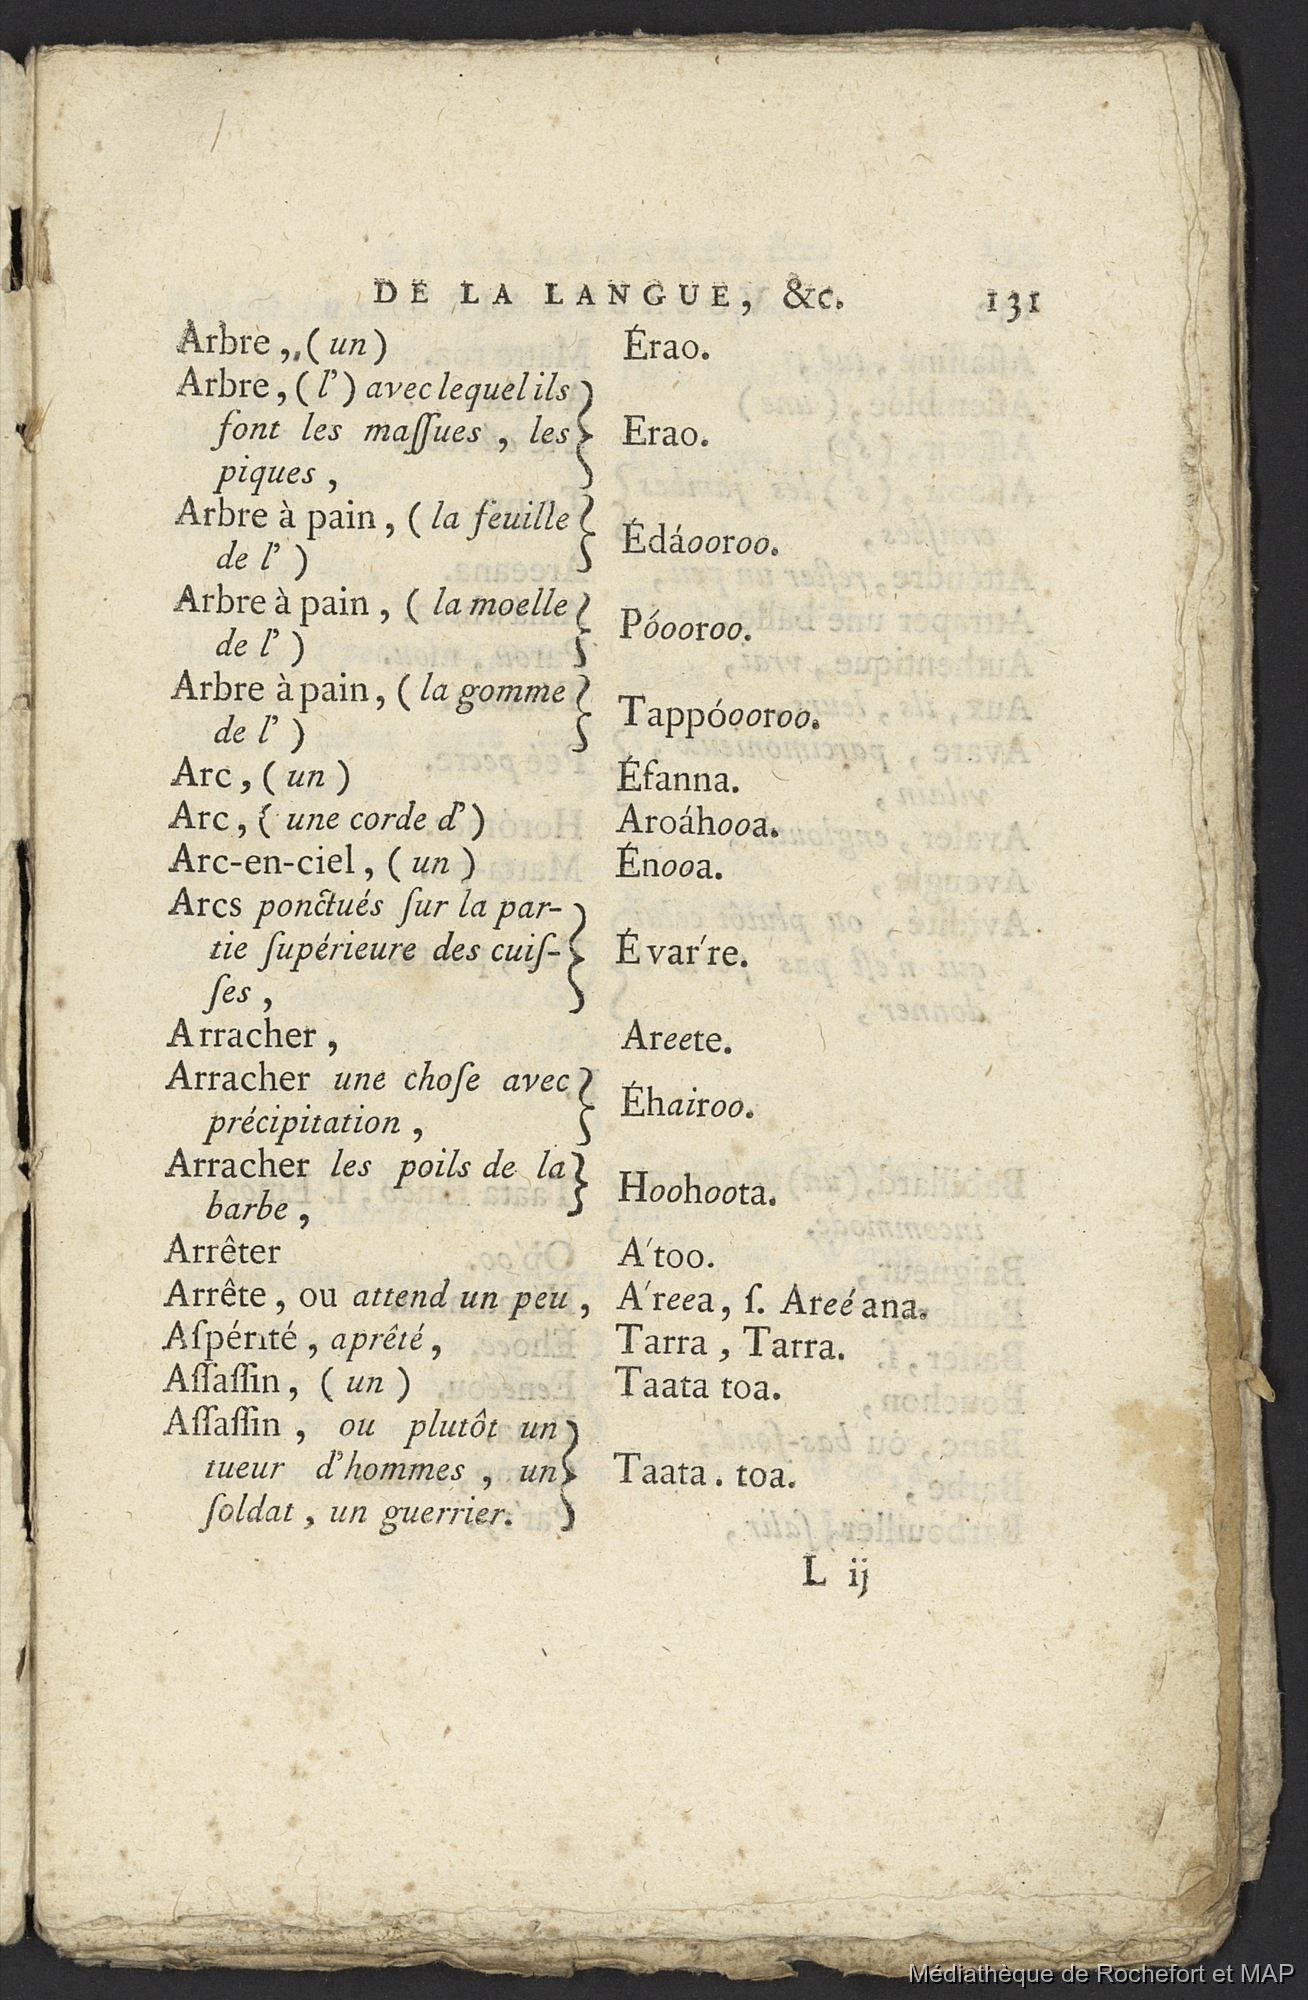 DE LA LANGUE, &c. 131
Arbre, (un) Érao.
Arbre, (l') avec lequel ils
font les maſſues, les Erao.
piques,
Arbre à pain, (la feuille
de l') Édáooroo.
Arbre à pain, (la moelle
de l') Póooroo.
Arbre à pain, (la gomme
de l') Tappóooroo.
Arc, (un) Éfanna.
Arc, (une corde d') Aroáhooa.
Arc-en-ciel, (un) Énooa.
Arcs ponctués ſur la par-
tie ſupérieure des cuiſ- Évar're.
ſes,
Arracher, Areete.
Arracher une choſe avec
précipitation, Éhairoo.
Arracher les poils de la
barbe, Hoohoota.
Arrêter A'too.
Arrête, ou attend un peu, A'reea, ſ. Areéana.
Aſpérité, aprêté, Tarra, Tarra.
Aſſaſſin, (un) Taata toa.
Aſſaſſin, ou plutôt un
tueur d'hommes, un Taata. toa.
ſoldat, un guerrier.
L ij
Médiathèque de Rochefort et MAP